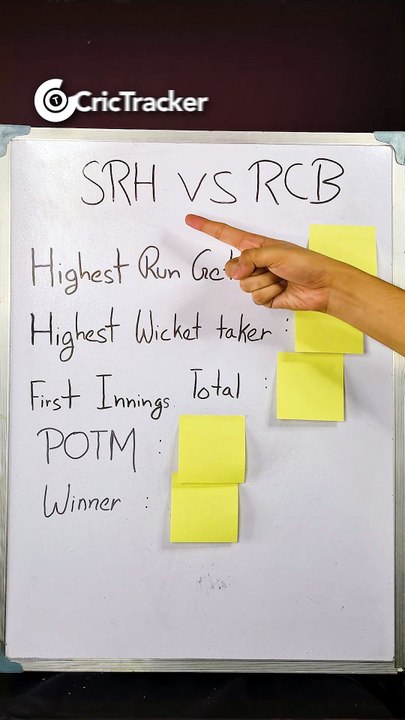 CricTracker
SRH VS RCB
Highest Run
Highest Wicket taker :
First Innings Total :
POTM :
Winner :